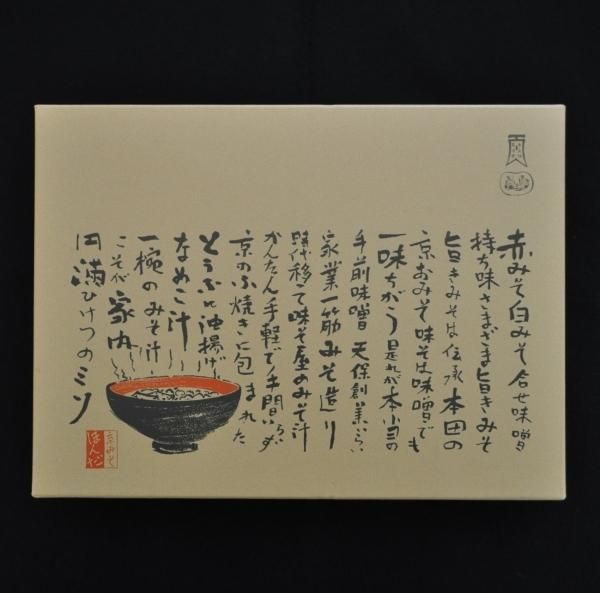 赤みそ白みそ合せ味噌
持ち味さまざま旨きみそ
旨きみそは伝承本田の
京おみそ味そは味噌でも
一味ちがう是れが本田の
手前味噌 天保創業いらい
家業一筋みそ造り
時代移て味そ屋のみそ汁
かんたん手軽で手間いらず
京のふ焼きに包まれた
とうふに油揚げ
なめこ汁
一椀のみそ汁
こそが家内
円満ひけつのミソ
京みそ
ほんだ